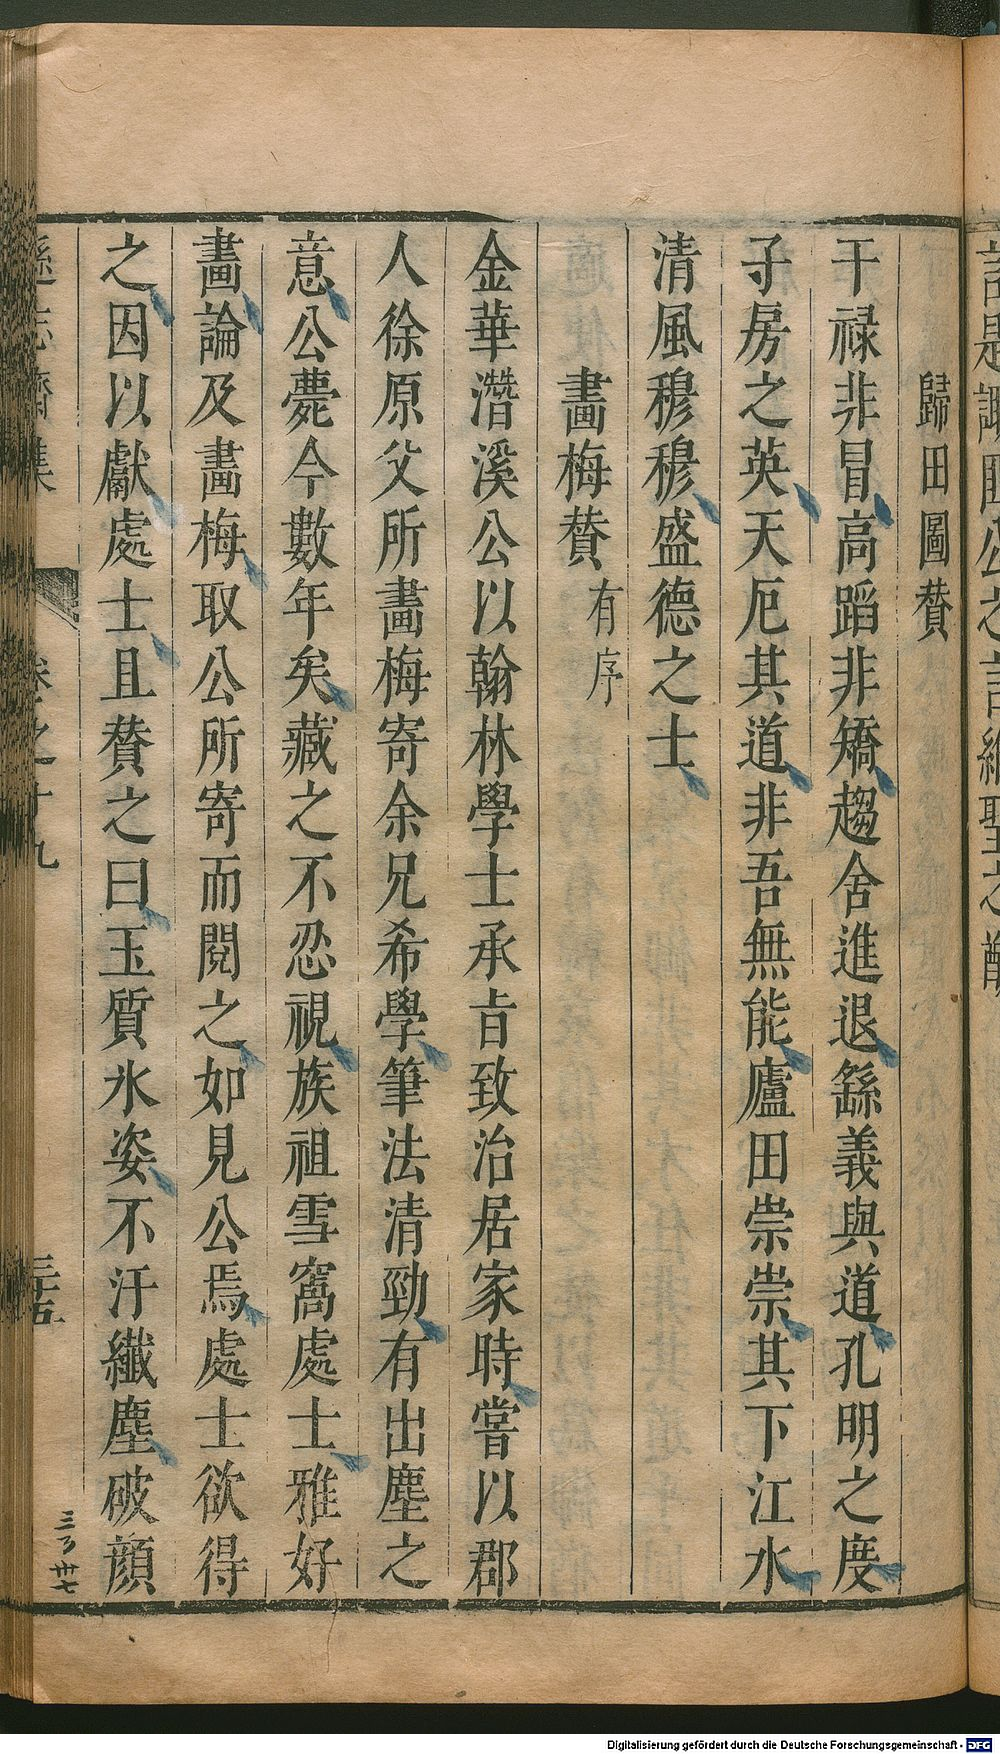 歸田圖賛
干祿非冒高蹈非矯趨舍進退繇義與道孔明之度
子房之英天厄其道非吾無能廬田崇崇其下江水
清風穆穆盛德之士
畫梅賛 有序
金華潛溪公以翰林學士承旨致治居家時嘗以郡
人徐原父所畫梅寄余兄希學筆法清勁有出塵之
意公薨今數年矣藏之不忍視族祖雪窩處士雅好
畫論及畫梅取公所寄而閱之如見公焉處士欲得
之因以獻處士且賛之曰玉質氷姿不汙纖塵破顔
遜志齋集 卷之十九 三十五
Digitalisierung gefördert durch die Deutsche Forschungsgemeinschaft - DFG